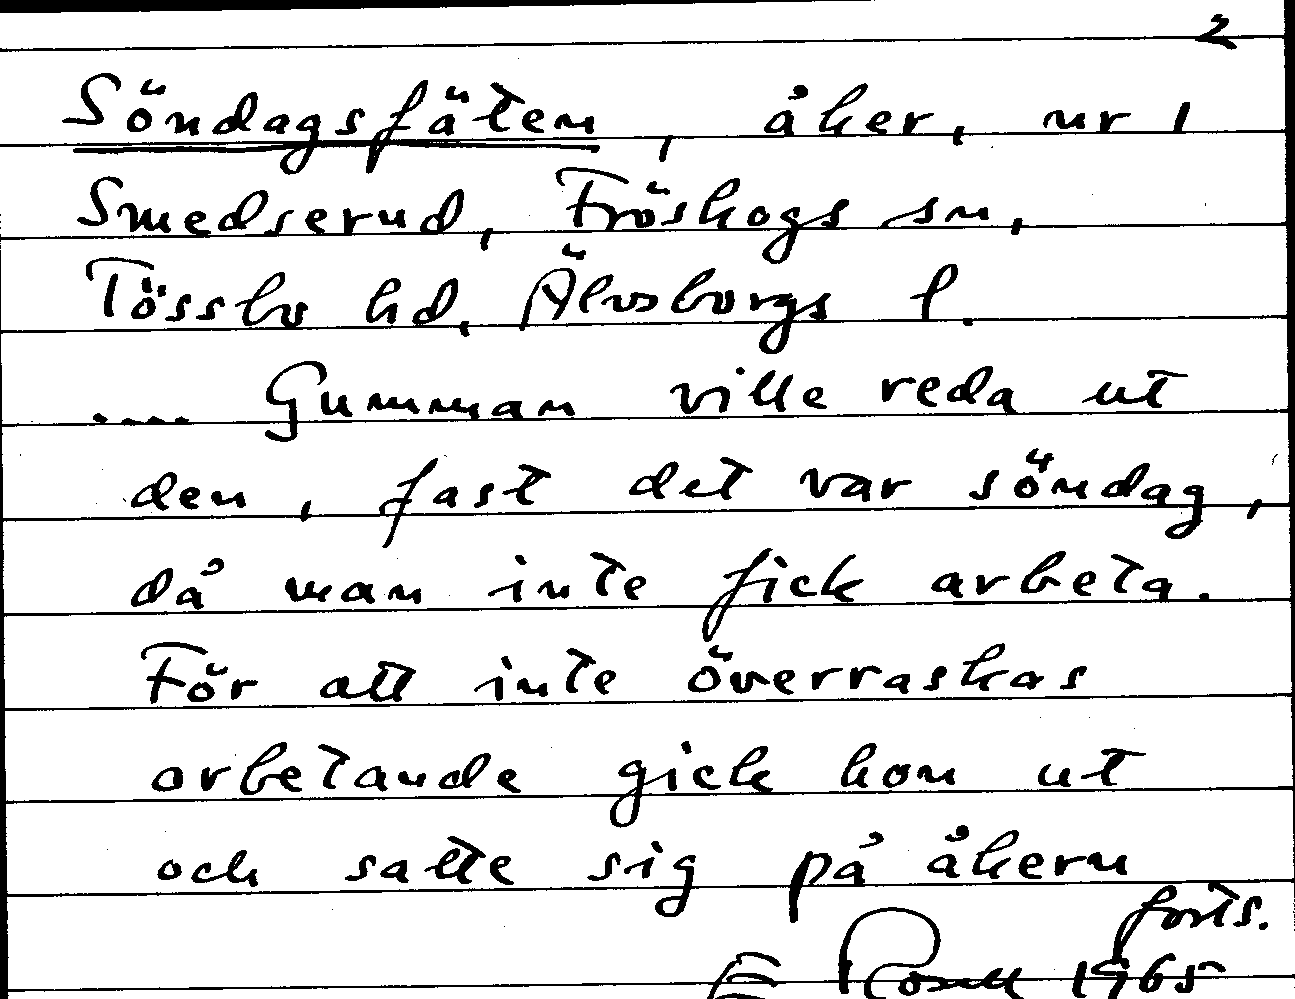 2
Söndagsfäten, åker, nr 1
Smedserud, Fröskogs sn,
Tössbo hd, Älvsborgs l.
.... Gumman ville reda ut
den, fast det var söndag,
då man inte fick arbeta.
För att inte överraskas
arbetande gick hon ut
och satte sig på åkern
forts.
E Rosell 1965